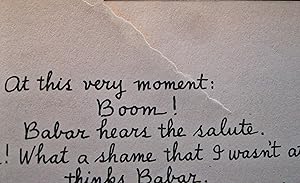 At this very moment:
Boom!
Babar hears the salute.
! What a shame that I wasn't a
thinks Babar.